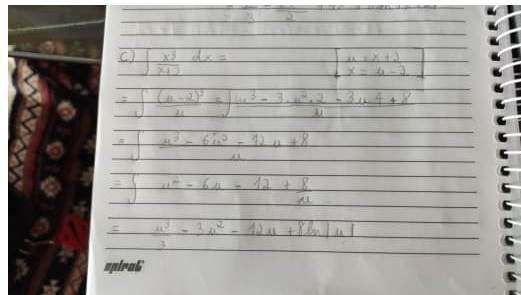 c) ∫ x3/x+2 dx = [ u = x+2
x = u-2 ]
= ∫ (u-2)³/u = ∫ u³ - 3.u².2 - 3u.4 + 8/u
= ∫ u³ - 6u² - 12u + 8/u
= ∫ u² - 6u - 12 + 8/u
= u³/3 - 3u² - 12u + 8ln|u|
spiral